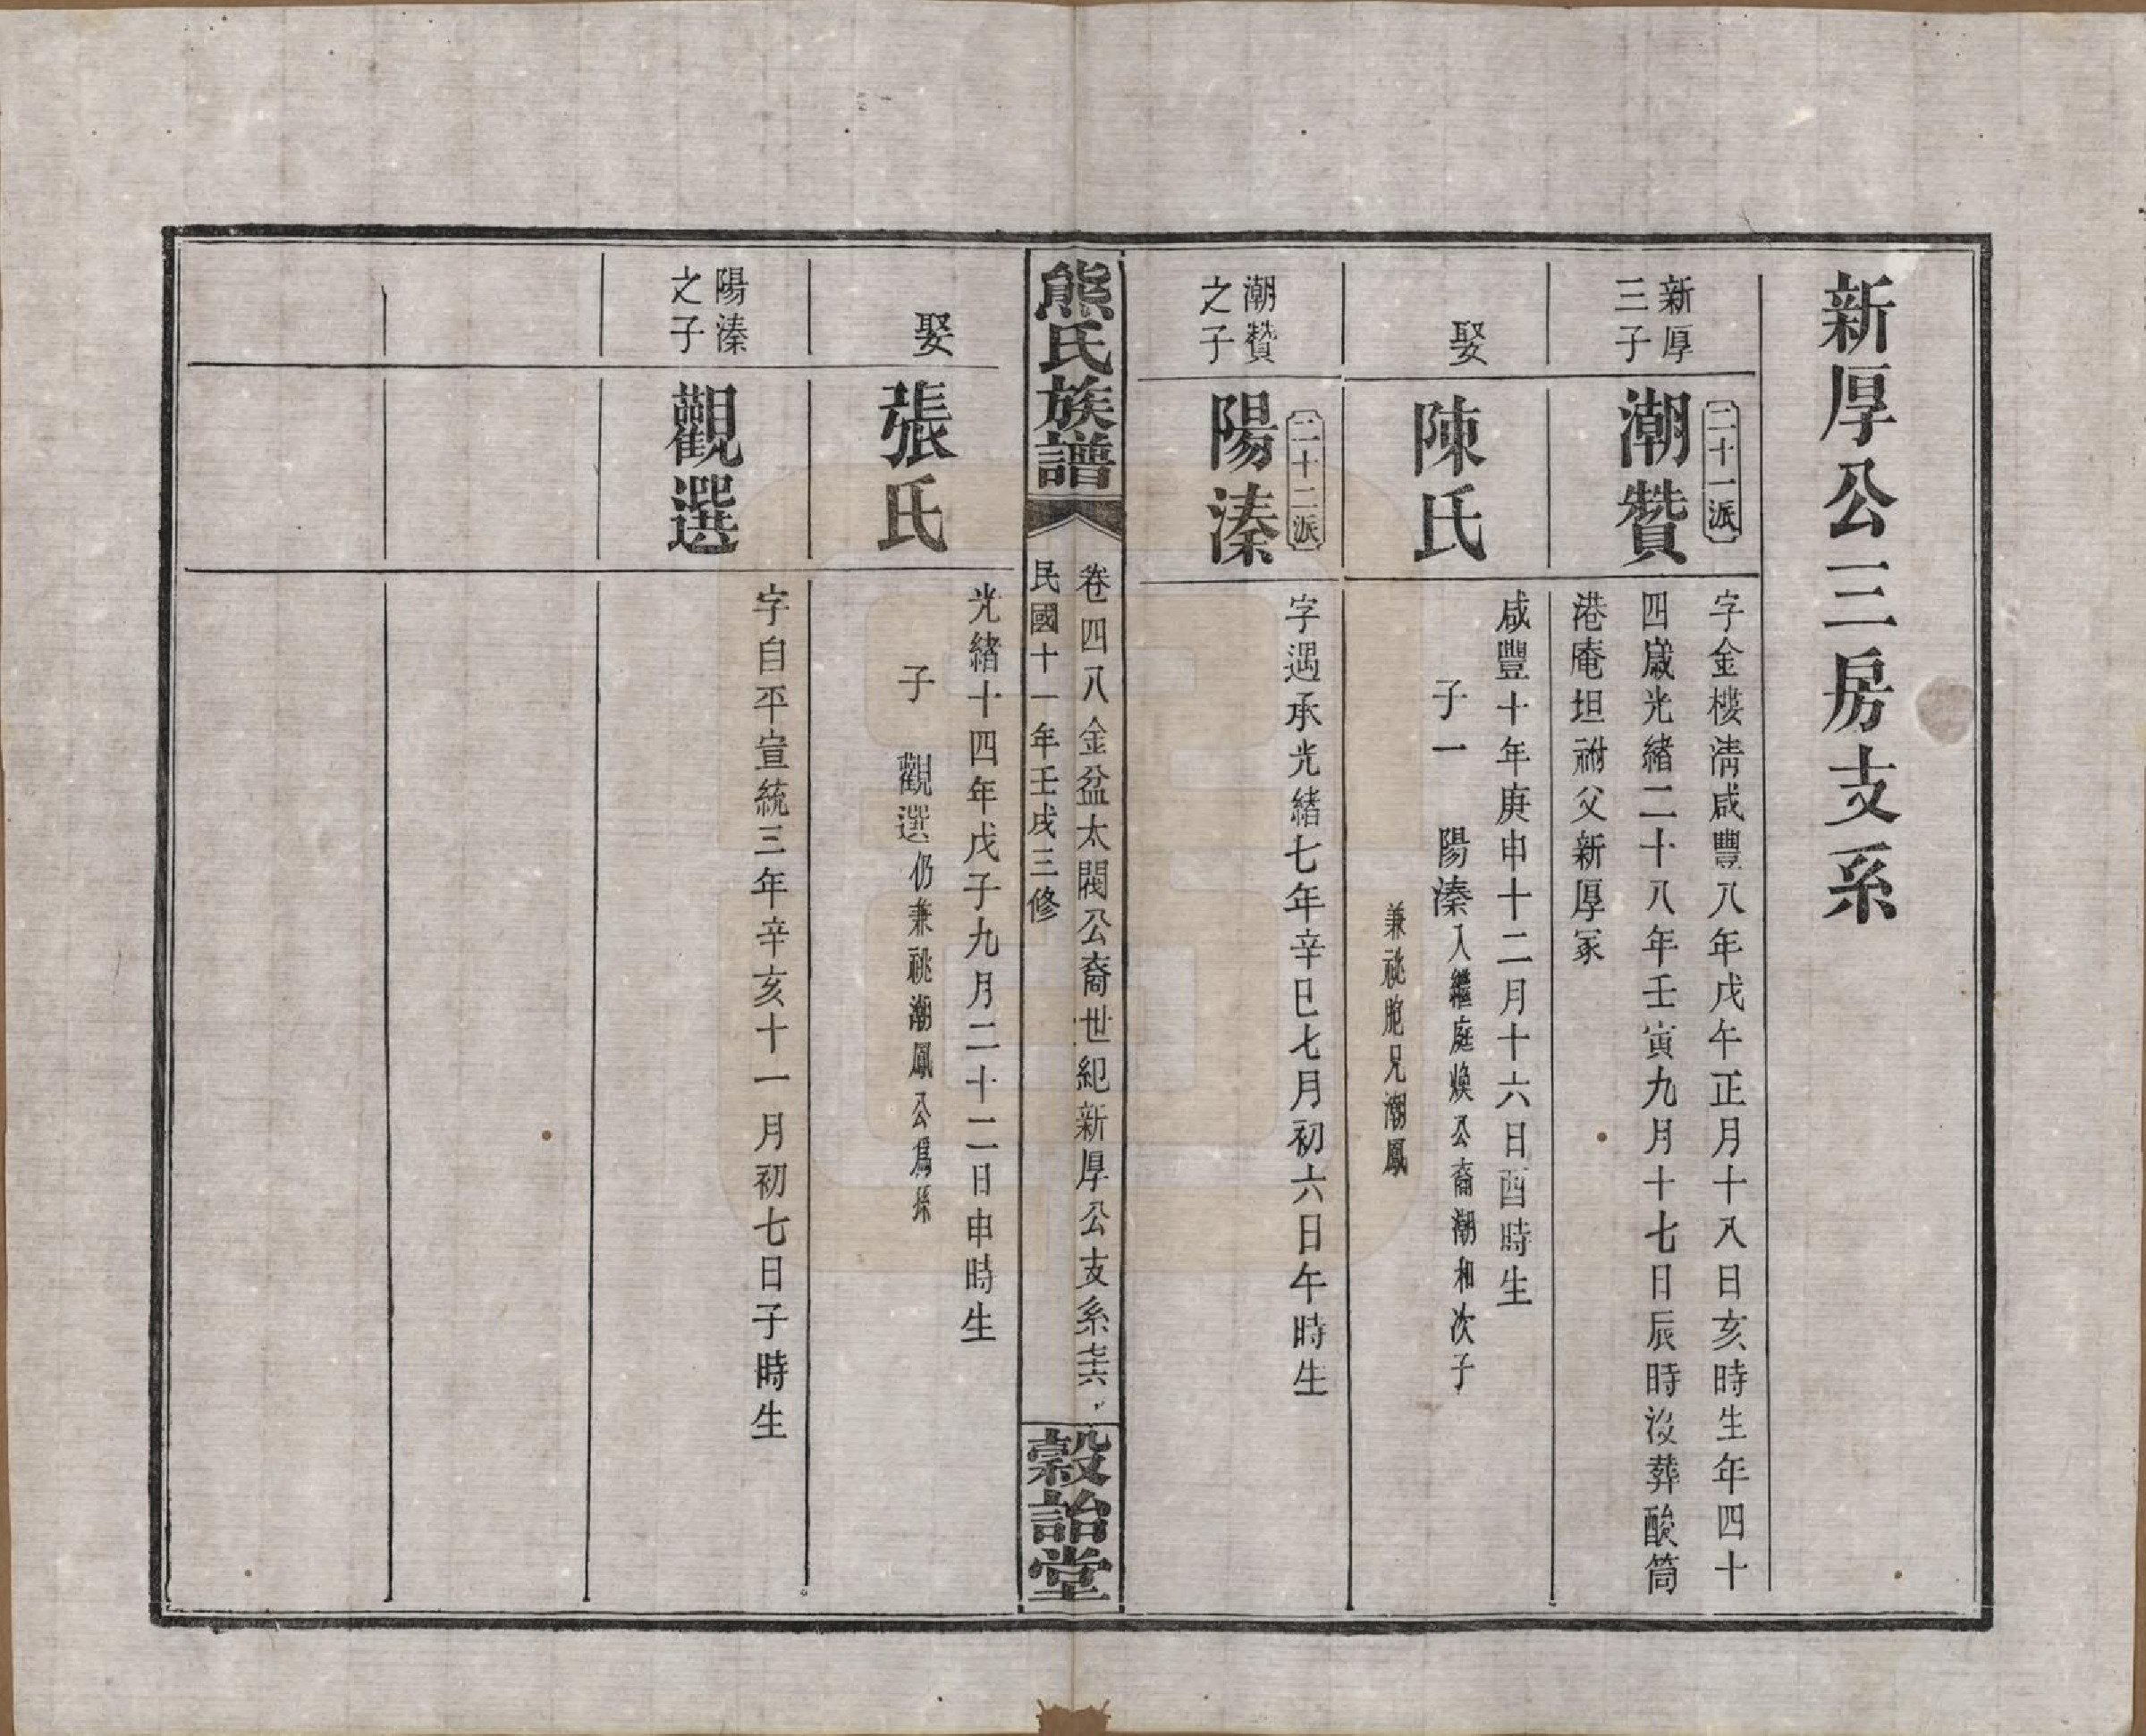 新厚公三房支系
新厚
三子
二十一派
潮贊
字金樓淸咸豐八年戊午正月十八日亥時生年四十
四歲光緒二十八年壬寅九月十七日辰時沒葬酸筒
港庵坦祔父新厚冢
娶
陳氏
咸豐十年庚申十二月十六日酉時生
子一 陽溱入繼庭煥公裔潮和次子
兼祧胞兄潮鳳
潮贊
之子
二十二派
陽溱
字遇承光緒七年辛巳七月初六日午時生
熊氏族譜
卷四八金盆太閥公裔世紀新厚公支系
民國十一年壬戌三修
穀詒堂
娶
張氏
光緒十四年戊子九月二十二日申時生
子 觀選仍兼祧潮鳳公爲孫
陽溱
之子
觀選
字自平宣統三年辛亥十一月初七日子時生